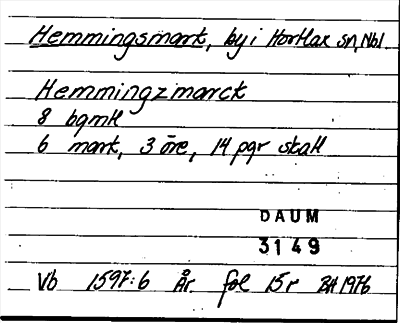 Hemmingsmark, by i Hortlax sn, Nbl.
Hemmingzmarck
8 bgmtl
6 mark, 3 öre, 14 pgr skatt
DAUM
3149
Vb 1597:6 År fol 15r BA 1976